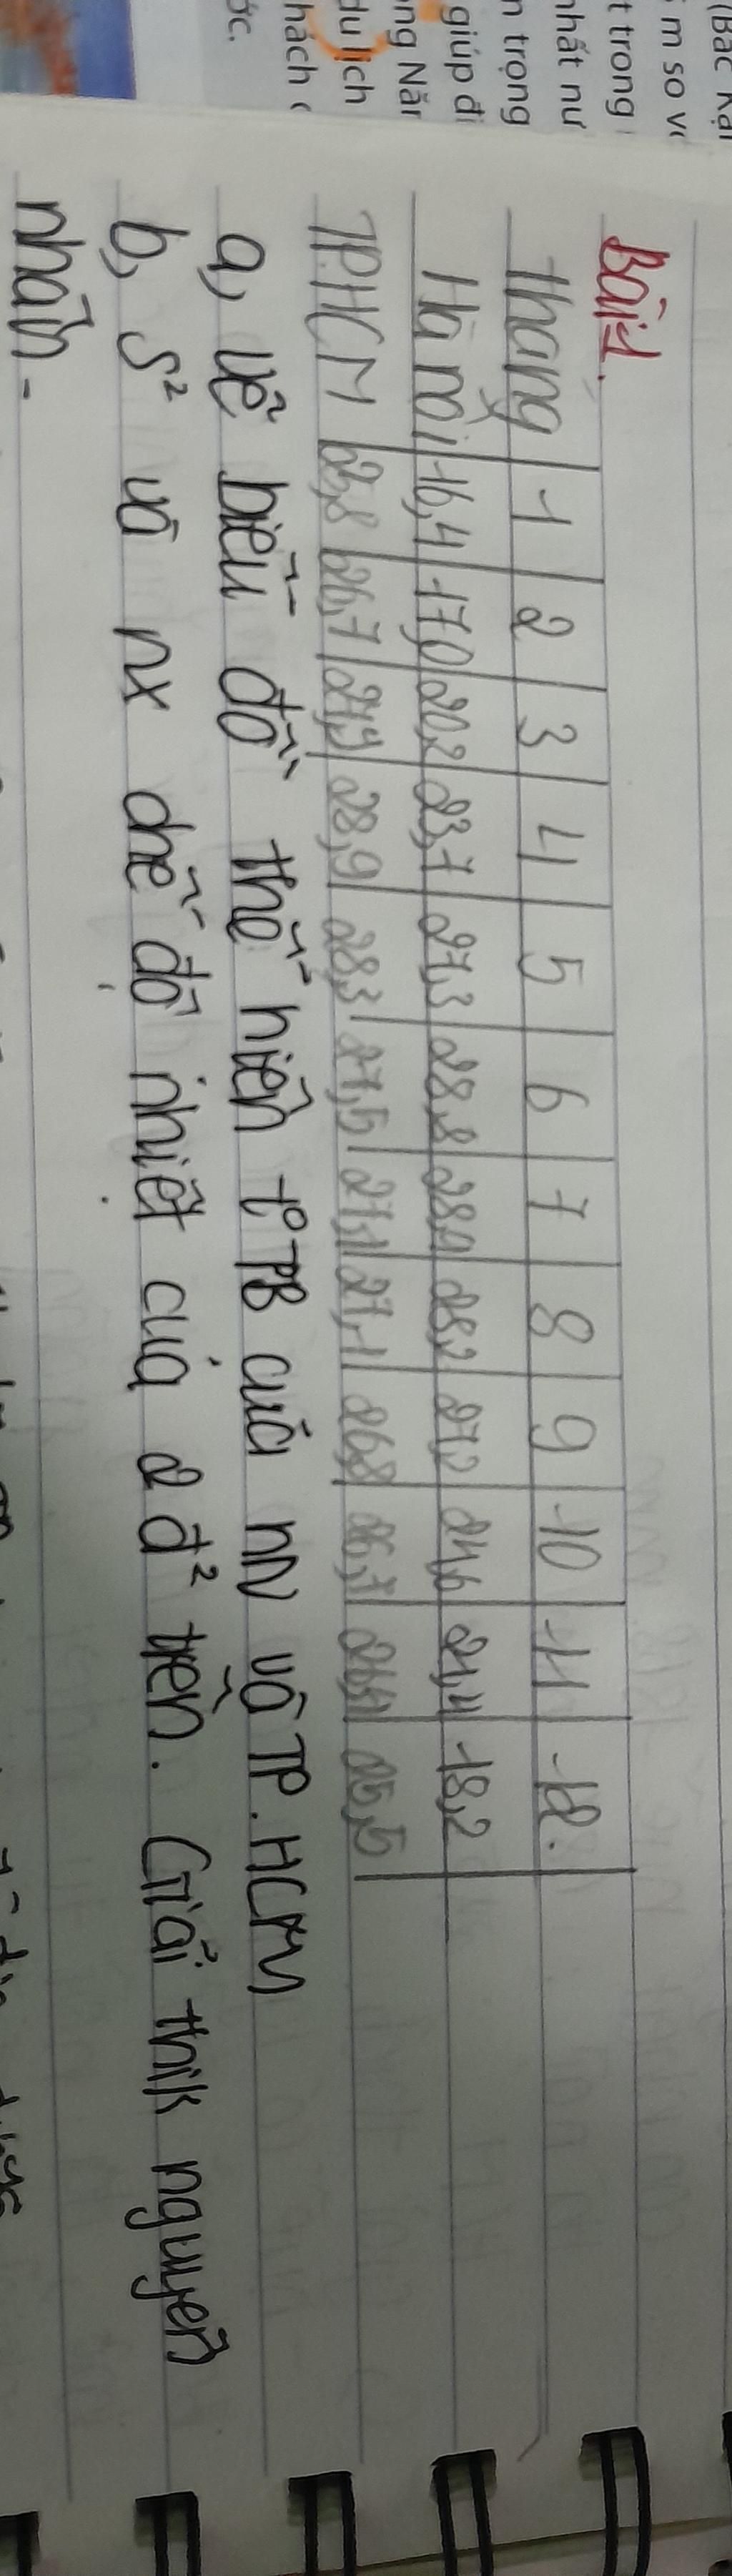 (Bắc Kạn
m so vớ
t trong
nhất nư
n trọng
giúp đi
ng Năn
du lịch
hách
ớc.
Bài 1.
Tháng 1 2 3 4 5 6 7 8 9 10 11 12.
Hà nội 16,4 17,0 20,2 23,7 27,3 28,8 28,9 28,2 27,2 24,6 21,4 18,2
TP.HCM 25,8 26,7 27,9 28,9 28,3 27,5 27,1 27,1 26,8 26,7 26,4 25,5
a, vẽ biểu đồ thể hiện t°TB của HN và TP.HCM
b, S² và nx chế độ nhiệt của 2 đ² trên. Giải thik nguyên
nhân.